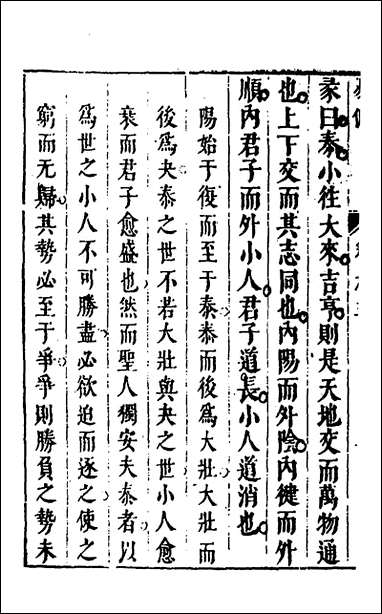 彖曰泰小徃大來吉亨則是天地交而萬物通
也上下交而其志同也內陽而外陰內健而外
順內君子而外小人君子道長小人道消也
陽始于復而至于泰泰而後爲大壯大壯而
後爲夬泰之世不若大壯與夬之世小人愈
衰而君子愈盛也然而聖人獨安夫泰者以
爲世之小人不可勝盡必欲迫而逐之使之
窮而无歸其勢必至于爭爭則勝負之勢未